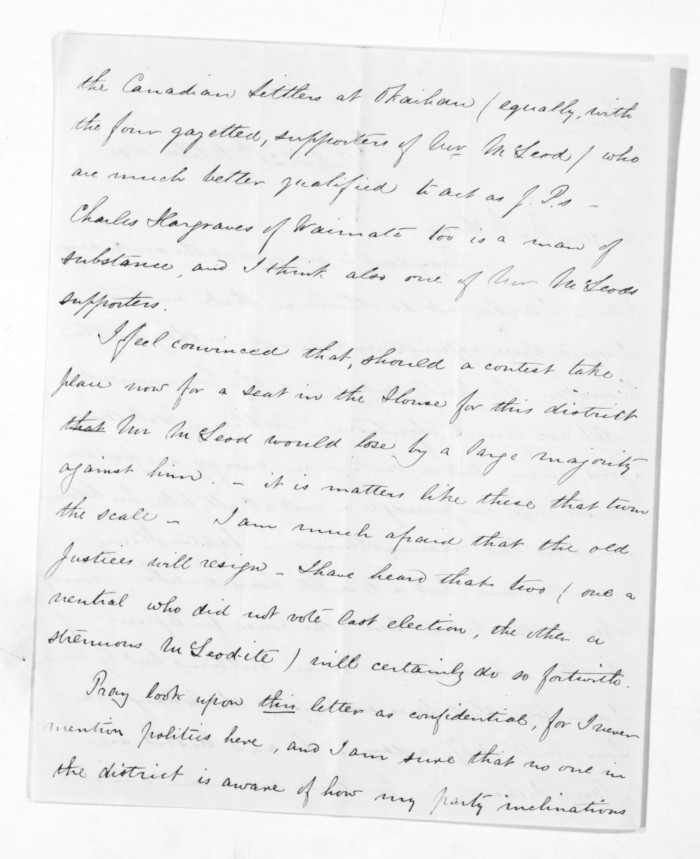 the Canadian Settlers at Okaihau (equally, with
the four gazetted, supporters of Mr. McLeod) who
are much better qualified to act as J.P.s –
Charles Hargraves of Waimate too is a man of
substance, and I think also one of Mr McLeods
supporters.
I feel convinced that, should a contest take
place now for a seat in the House for this district
that Mr McLeod would lose by a large majority
against him, – it is matters like these that turn
the scale – I am much afraid that the old
Justices will resign – I have heard that two (one a
neutral who did not vote last election, the other a
strenuous McLeod-ite) will certainly do so fortwith.
Pray look upon this letter as confidential, for I never
mention politics here, and I am sure that no one in
the district is aware of how my party inclinations